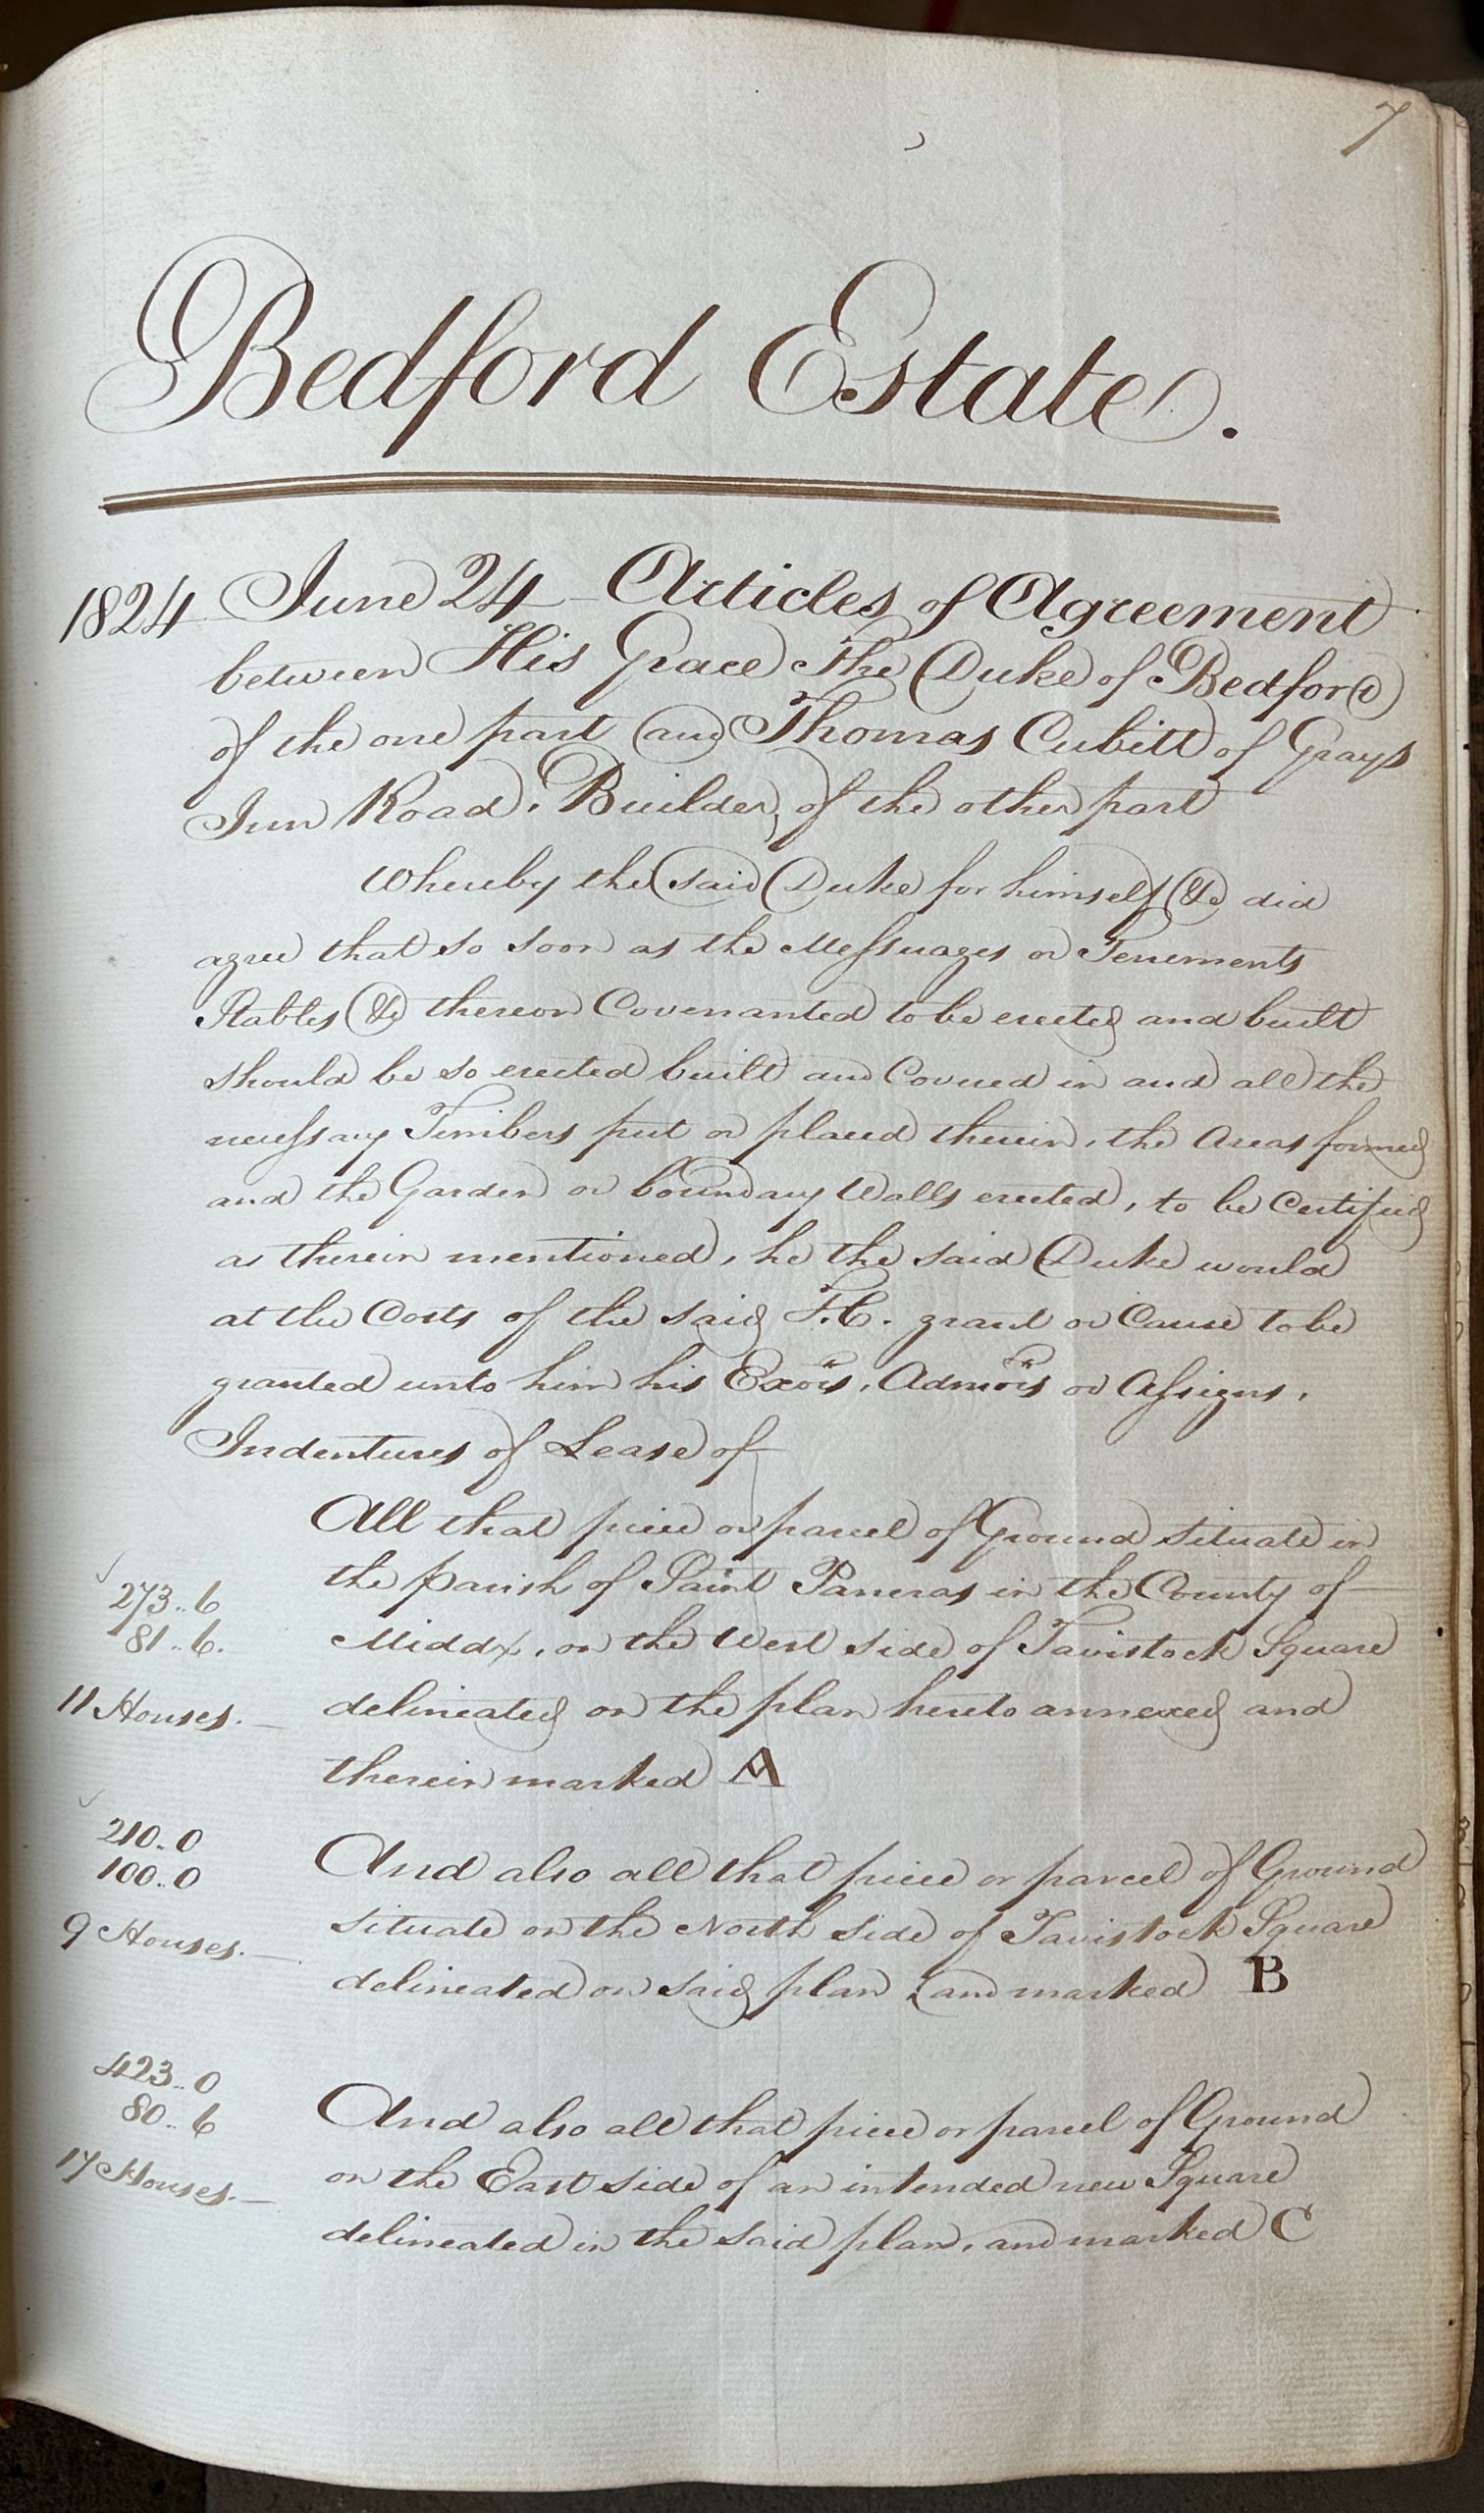 7
Bedford Estate.
1824 June 24 - Articles of Agreement
between His Grace The Duke of Bedford
of the one part and Thomas Cubitt of Grays
Inn Road, Builder, of the other part
Whereby the said Duke for himself &c did
agree that so soon as the Messuages or Tenements
Stables &c thereon Covenanted to be erected and built
should be so erected built and Covered in and all the
necessary Timbers put or placed therein, the Areas formed
and the Garden or boundary Walls erected, to be Certified
as therein mentioned, he the said Duke would
at the Costs of the said T.C. grant or Cause to be
granted unto him his Exors, Admors or Assigns,
Indentures of Lease of
All that piece or parcel of Ground situate in
273.. 6 the parish of Saint Pancras in the County of
81.. 6. Middx, on the West side of Tavistock Square
11 Houses.— delineated on the plan hereto annexed and
therein marked A
210.. 0
100.. 0 And also all that piece or parcel of Ground
9 Houses.— situate on the North Side of Tavistock Square
delineated on said plan, and marked B
423.. 0
80.. 6 And also all that piece or parcel of Ground
17 Houses.— on the East side of an intended new Square
delineated in the said plan, and marked C